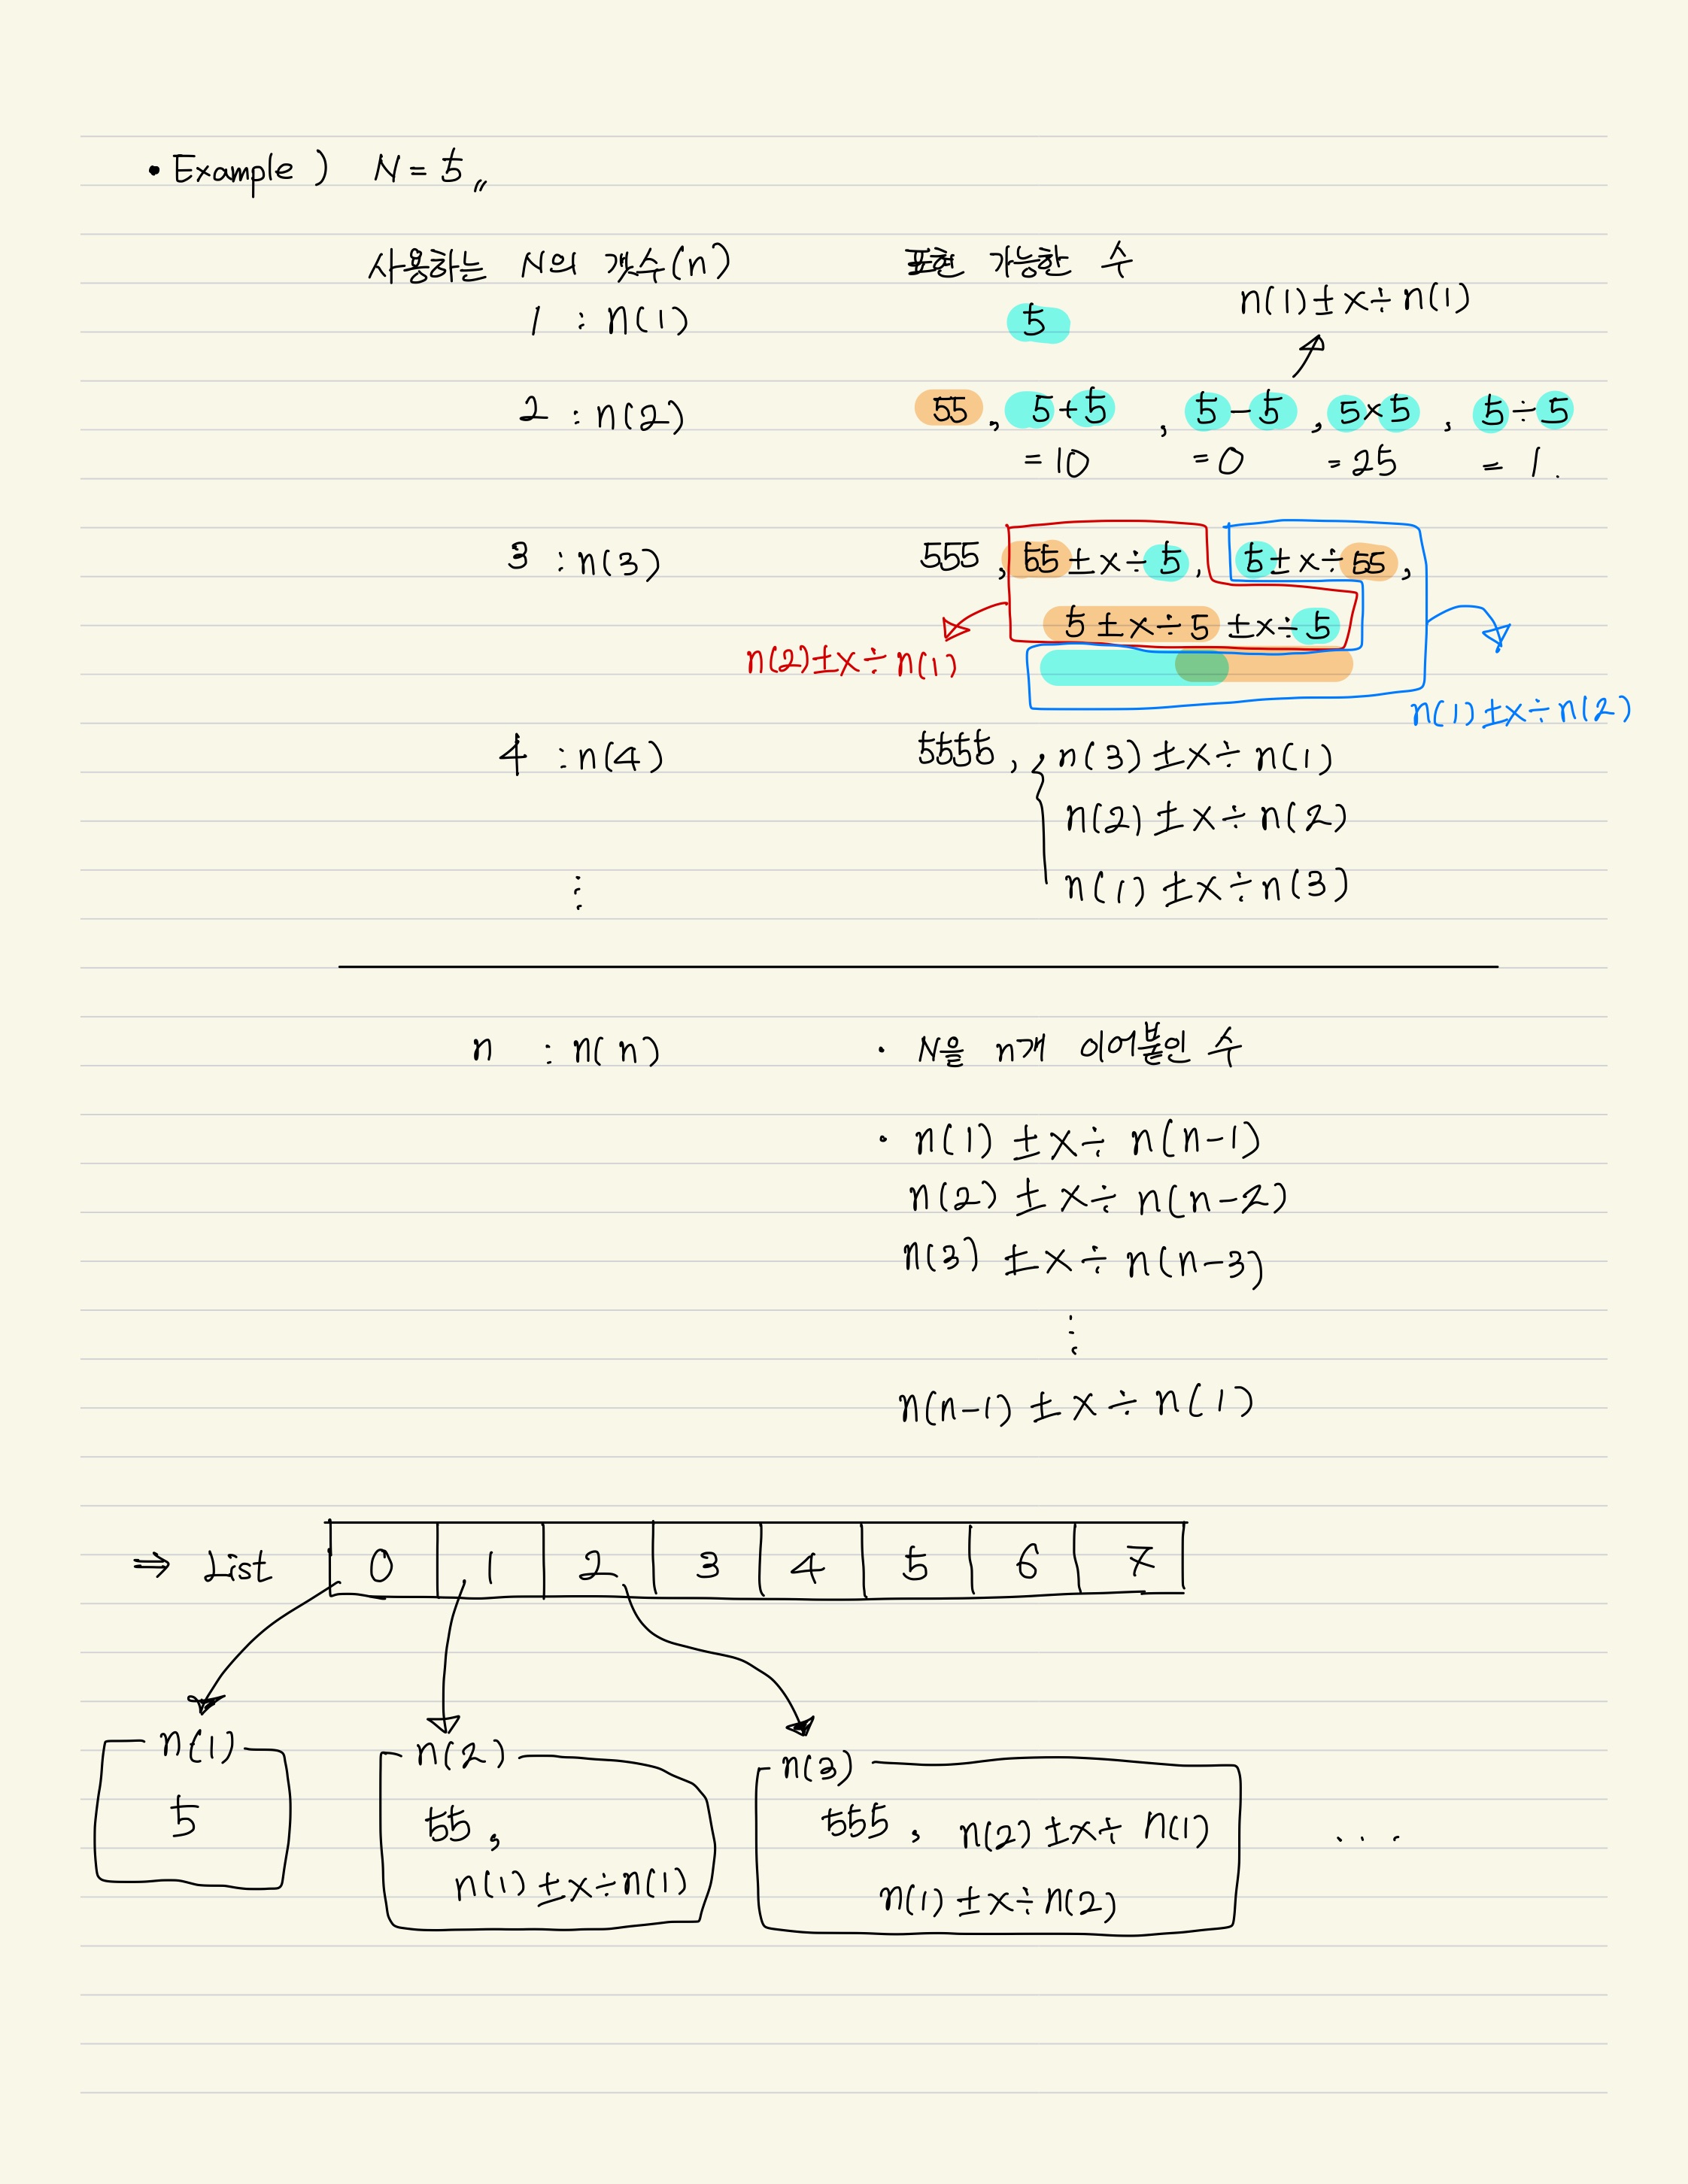 • Example ) N = 5 〃
사용하는 N의 갯수(n) 표현 가능한 수
1 : n(1) 5 n(1) ± × ÷ n(1)
2 : n(2) 55 , 5+5 , 5-5 , 5×5 , 5÷5
=10 =0 =25 = 1 .
3 : n(3) 555 , 55 ± × ÷ 5 , 5 ± × ÷ 55 ,
5 ± × ÷ 5 ± × ÷ 5
n(2) ± × ÷ n(1)
n(1) ± × ÷ n(2)
4 : n(4) 5555 , { n(3) ± × ÷ n(1)
n(2) ± × ÷ n(2)
n(1) ± × ÷ n(3)
⋮
n : n(n) · N을 n개 이어붙인 수
· n(1) ± × ÷ n(n-1)
n(2) ± × ÷ n(n-2)
n(3) ± × ÷ n(n-3)
⋮
n(n-1) ± × ÷ n(1)
⇒ List 0 1 2 3 4 5 6 7
n(1) n(2) n(3)
5 55 , 555 , n(2) ± × ÷ n(1) ...
n(1) ± × ÷ n(1) n(1) ± × ÷ n(2)